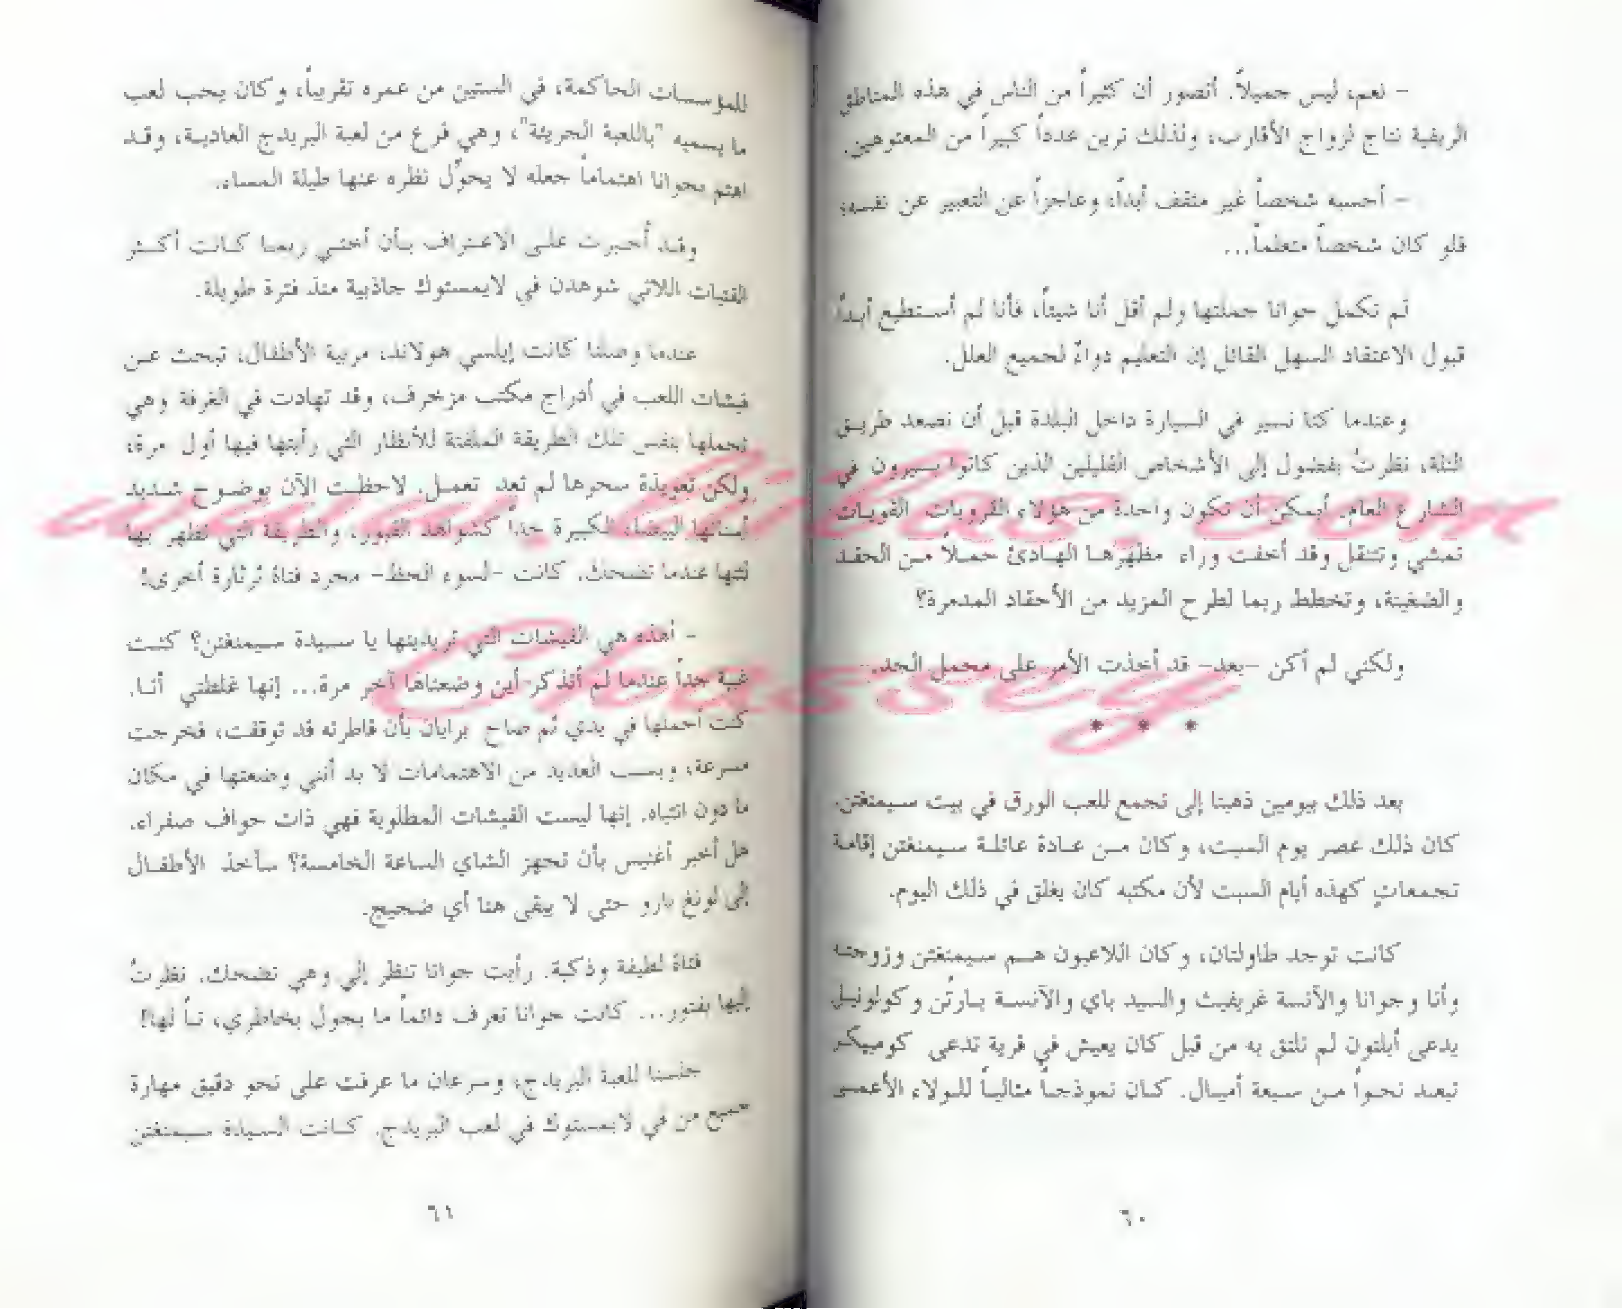 - نعم، ليس جميلاً. أتصور أن كثيراً من الناس في هذه المناطق
الريفية نتاج لزواج الأقارب، ولذلك ترين عدداً كبيراً من المعتوهين.
- أحسبه شخصاً غير مثقف أبداً، وعاجزاً عن التعبير عن نفسه،
فلو كان شخصاً متعلماً...
لم تكمل جوانا جملتها ولم أقل أنا شيئاً، فأنا لم أستطيع أبداً
قبول الاعتقاد السهل القائل إن التعليم دواءٌ لجميع العلل.
وعندما كنا نسير في السيارة داخل البلدة قبل أن نصعد طريق
التلة، نظرتُ بفضول إلى الأشخاص القليلين الذين كانوا يسيرون في
الشارع العام. أيمكن أن تكون واحدة من هؤلاء القرويات القويات
تمشي وتتنقل وقد أخفت وراء مظهرها الهادئ حملاً من الحقد
والضغينة، وتخطط ربما لطرح المزيد من الأحقاد المدمرة؟
ولكني لم أكن -بعد- قد أخذت الأمر على محمل الجد.
* * *
بعد ذلك بيومين ذهبنا إلى تجمع للعب الورق في بيت سيمنغتن.
كان ذلك عصر يوم السبت، وكان من عادة عائلة سيمنغتن إقامة
تجمعاتٍ كهذه أيام السبت لأن مكتبه كان يغلق في ذلك اليوم.
كانت توجد طاولتان، وكان اللاعبون هم سيمنغتن وزوجته
وأنا وجوانا والآنسة غريفيث والسيد باي والآنسة بارتُن وكولونيل
يدعى أبلتون لم نلتق به من قبل كان يعيش في قرية تدعى كومبيكر
تبعد نحواً من سبعة أميال. كان نموذجاً مثالياً للولاء الأعمى
٦٠
للمؤسسات الحاكمة، في الستين من عمره تقريباً، وكان يحب لعب
ما يسميه "باللعبة الجريئة"، وهي فرع من لعبة البريدج العادية، وقد
اهتم بجوانا اهتماماً جعله لا يحوّل نظره عنها طيلة المساء.
وقد أُجبرت على الاعتراف بأن أختي ربما كانت أكثر
الفتيات اللاتي شوهدن في لايمستوك جاذبية منذ فترة طويلة.
عندما وصلنا كانت إيلسي هولاند، مربية الأطفال، تبحث عن
فيشات اللعب في أدراج مكتب مزخرف، وقد تهادت في الغرفة وهي
تحملها بنفس تلك الطريقة الملفتة للأنظار التي رأيتها فيها أول مرة،
ولكن تعويذة سحرها لم تعد تعمل. لاحظت الآن بوضوح شديد
أسنانها البيضاء الكبيرة جداً كشواهد القبور، والطريقة التي تظهر بها
لثتها عندما تضحك. كانت -لسوء الحظ- مجرد فتاة ثرثارة أخرى!
- أهذه هي الفيشات التي تريدينها يا سيدة سيمنغتن؟ كنت
غبية جداً عندما لم أتذكر أين وضعناها آخر مرة... إنها غلطتي أنا.
كنت أحملها في يدي ثم صاح برايان بأن قاطرته قد توقفت، فخرجت
مسرعة، وبسبب العديد من الاهتمامات لا بد أنني وضعتها في مكان
ما دون انتباه. إنها ليست الفيشات المطلوبة فهي ذات حواف صفراء.
هل أخبر أغنيس بأن تجهز الشاي الساعة الخامسة؟ سآخذ الأطفال
إلى لونغ بارو حتى لا يبقى هنا أي ضجيج.
فتاة لطيفة وذكية. رأيت جوانا تنظر إلي وهي تضحك. نظرتُ
إليها بفتور... كانت جوانا تعرف دائماً ما يجول بخاطري، تباً لها!
جلسنا للعبة البريدج، وسرعان ما عرفت على نحو دقيق مهارة
جميع من في لايمستوك في لعب البريدج. كانت السيدة سيمنغتن
٦١
www.liilas.com